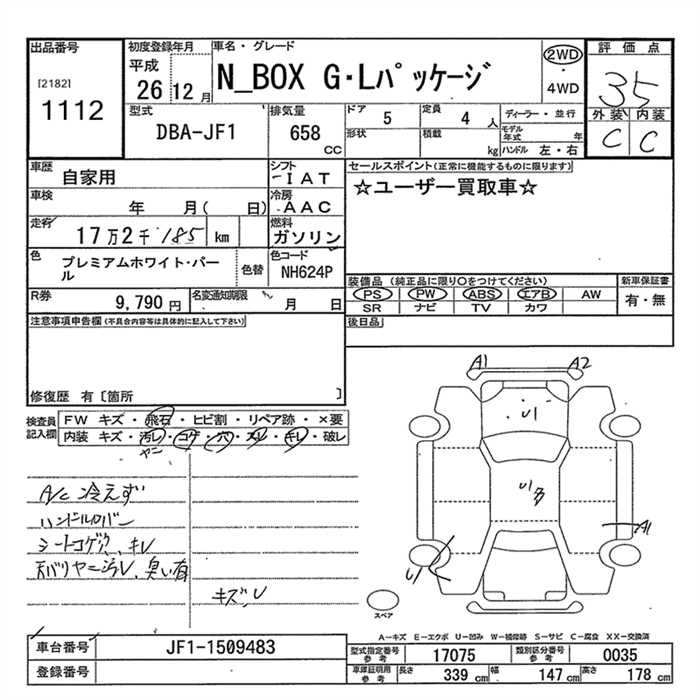 出品番号
[2182]
1112
初度登録年月
平成
26年12月
車名・グレード
N_BOX G・Lパッケージ
2WD
4WD
評価点
3.5
外装 内装
C C
型式
DBA-JF1
排気量
658
CC
ドア 5
定員 4 人
ディーラー・並行
形状
積載 kg
モデル年式 年
ハンドル 左・右
車歴 自家用
シフト
-IAT
車検 年 月( 日)
冷房
AAC
走行 17万2千185 km
燃料
ガソリン
色 プレミアムホワイト・パール
色替
色コード
NH624P
R券 9,790円
名変通知期限 月 日
セールスポイント(正常に機能するものに限ります)
☆ユーザー買取車☆
装備品(純正品に限り○をつけてください)
PS PW ABS エアB AW
SR ナビ TV カワ
新車保証書
有・無
後日品
注意事項申告欄(不具合内容等は具体的に記入して下さい)
修復歴 有〔箇所 〕
検査員記入欄
FW キズ・飛石・ヒビ割・リペア跡・×要
内装 キズ・汚レ・コゲ・穴・スレ・キレ・破レ
ヤニ
A/C 冷えず
シートコゲ穴、キレ
天バリヤニ汚レ、臭い有
キズ、U
A1 A2
U1
A1
U1
スペア
A-キズ E-エクボ U-凹み W-補修跡 S-サビ C-腐食 XX-交換済
車台番号 JF1-1509483
登録番号
型式指定番号参考 17075
類別区分番号参考 0035
車庫証明用参考 長さ 339 cm 幅 147 cm 高さ 178 cm